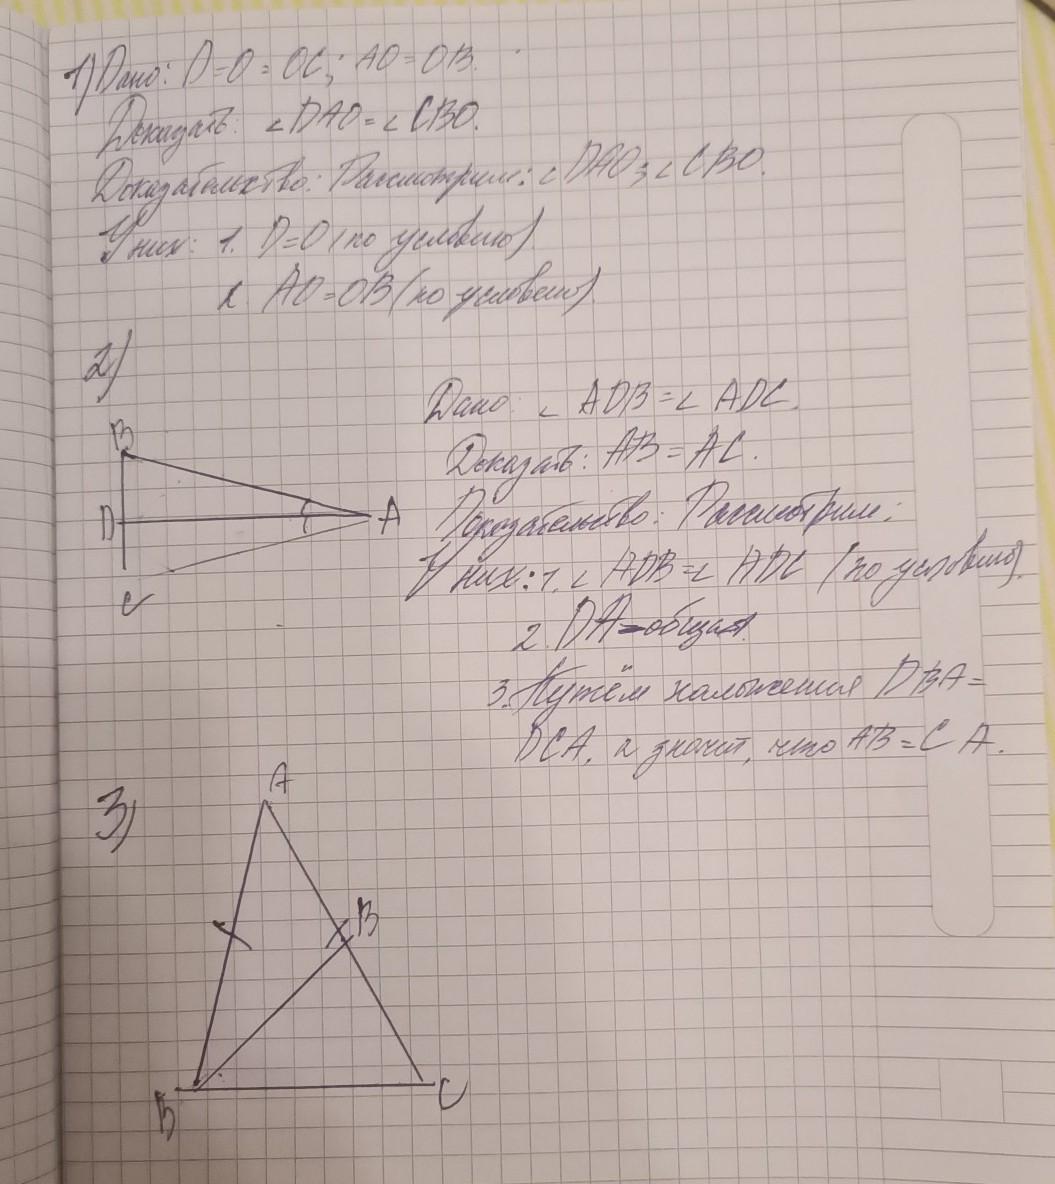 1) Дано: D=O=OC; AO=OB.
Доказать: ∠DAO=∠CBO.
Доказательство: Рассмотрим: ∠DAO; ∠CBO.
У них: 1. D=O (по условию)
2. AO=OB (по условию)
2)
Дано: ∠ADB=∠ADC.
Доказать: AB=AC.
Доказательство: Рассмотрим:
У них: 1. ∠ADB=∠ADC (по условию).
2. DA-общая.
3. Путём наложения DBA=
DCA, а значит, что AB=CA.
B
D
A
C
3)
A
B
B
C